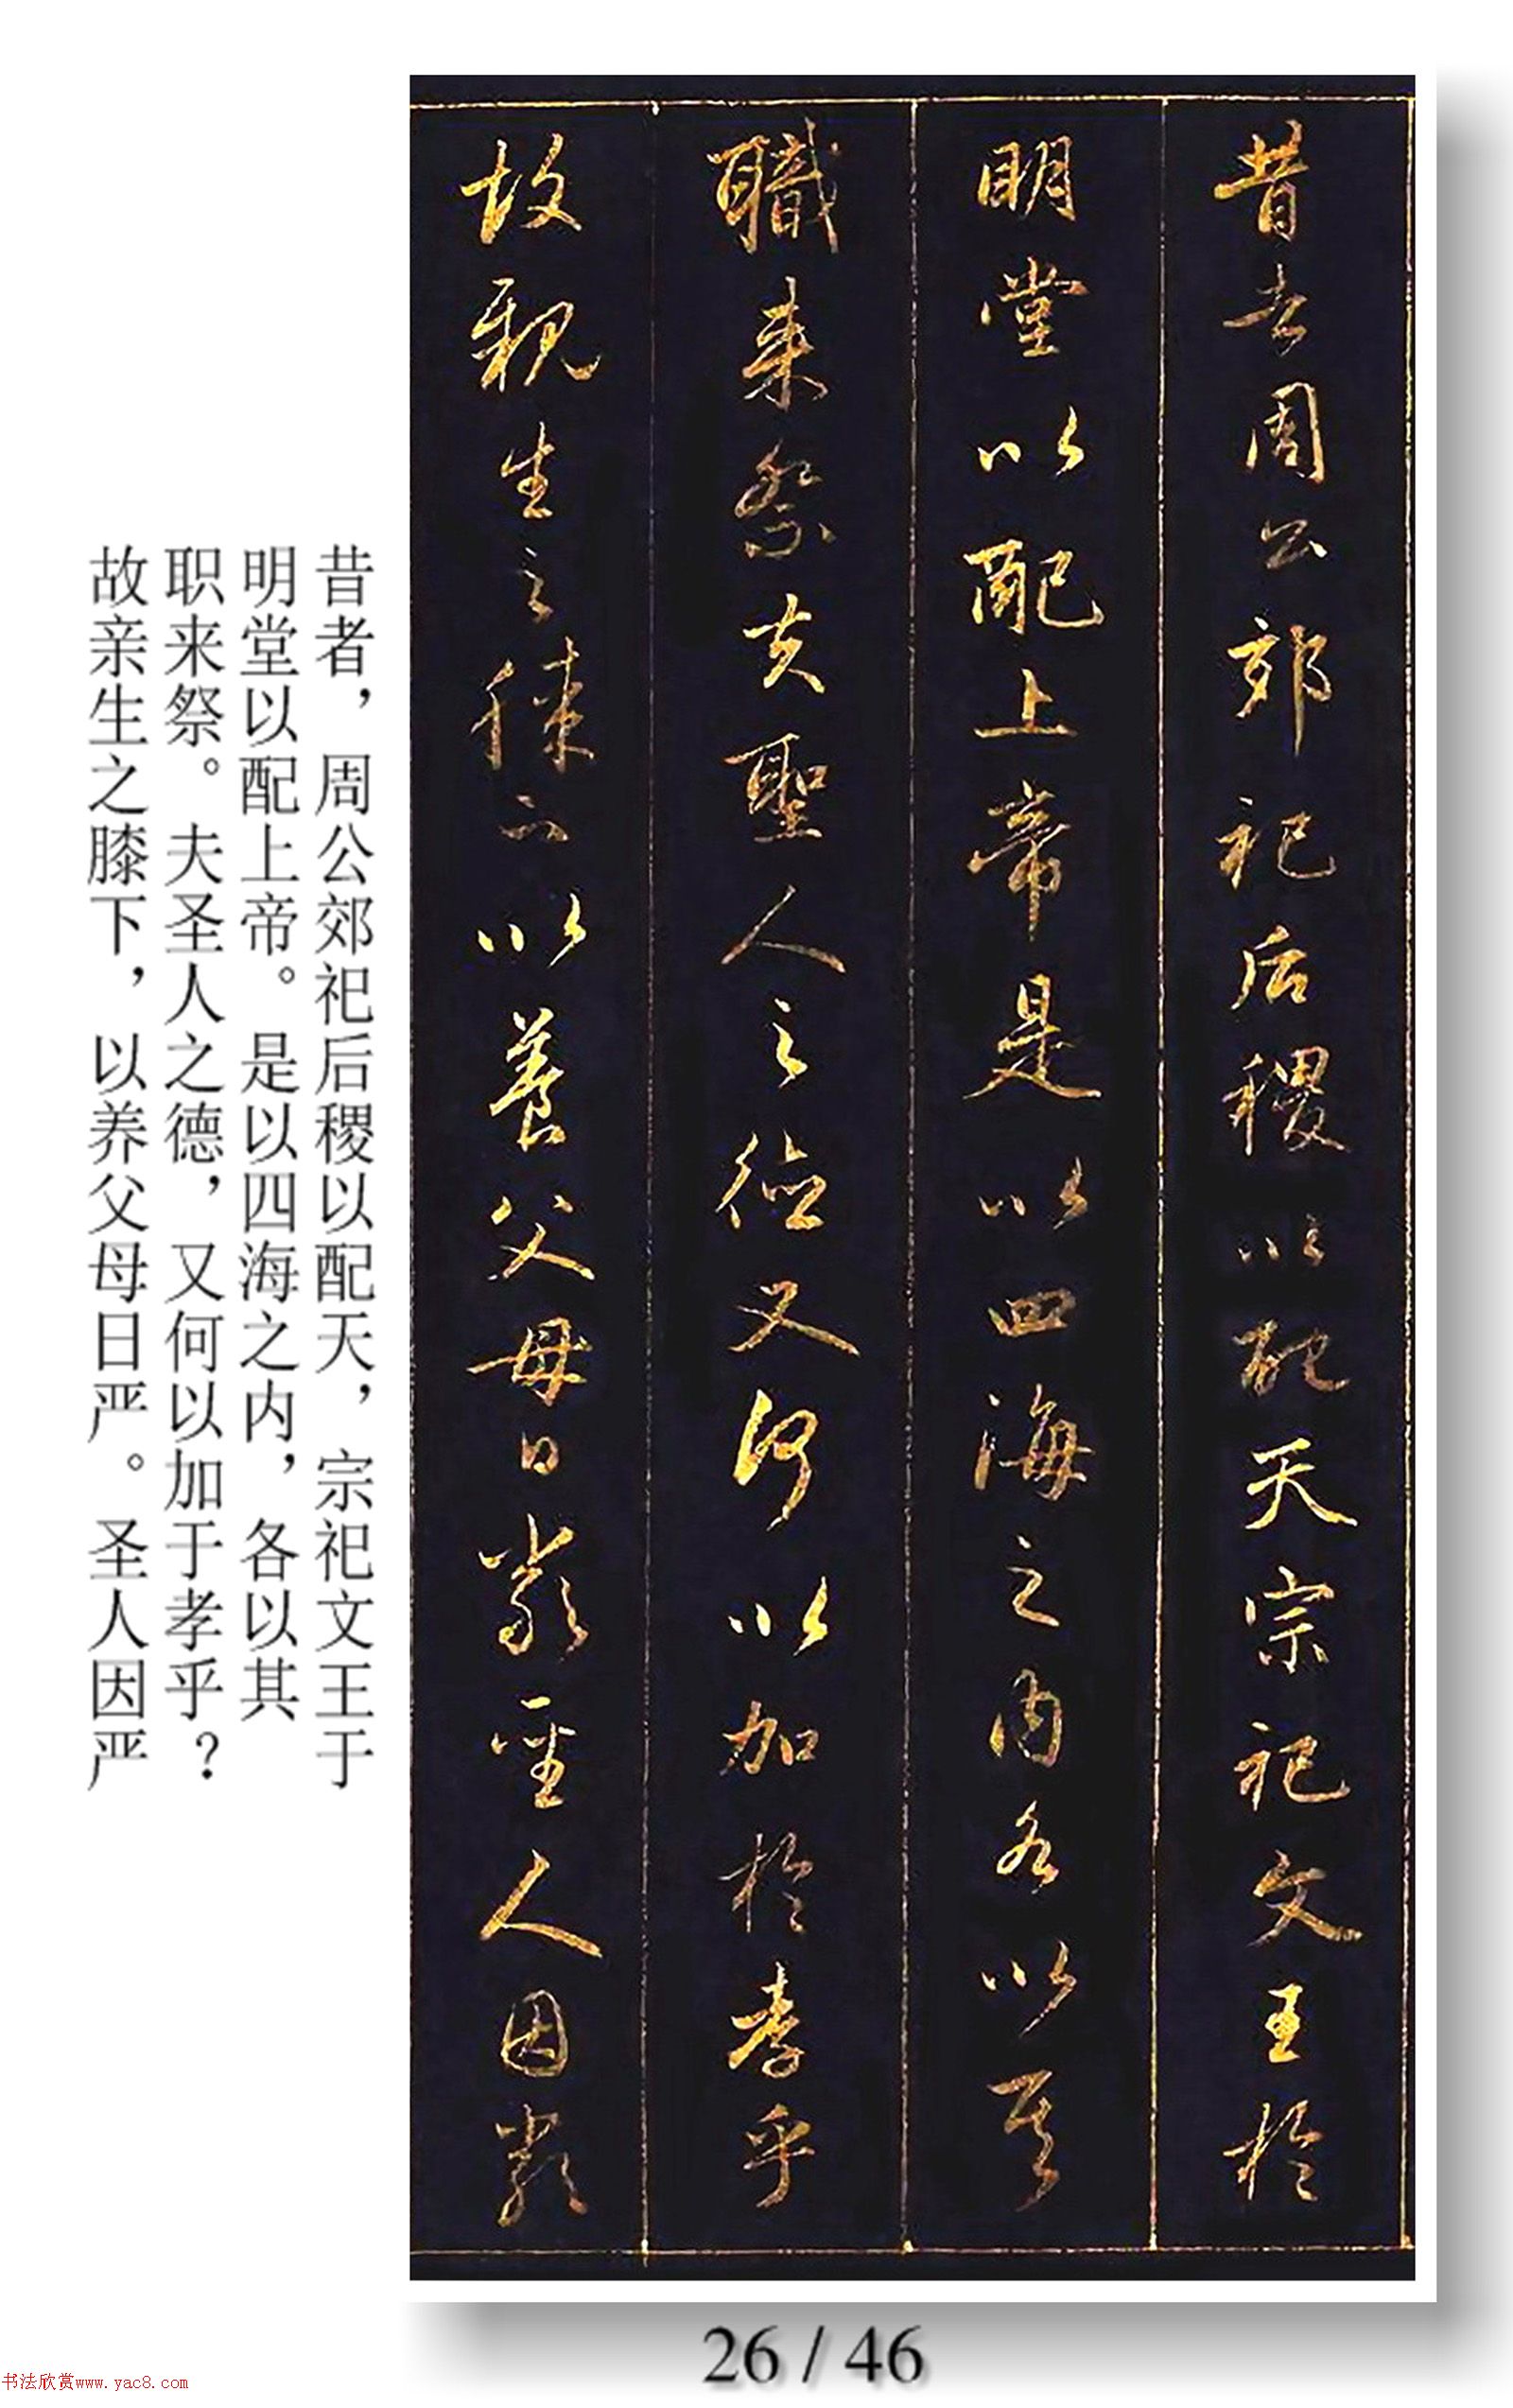 昔者周公郊祀后稷以配天宗祀文王於
明堂以配上帝是以四海之内各以其
職来祭夫聖人之徳又何以加於孝乎
故親生之膝下以養父母日嚴聖人因嚴
昔者，周公郊祀后稷以配天，宗祀文王于
明堂以配上帝。是以四海之内，各以其
职来祭。夫圣人之德，又何以加于孝乎？
故亲生之膝下，以养父母日严。圣人因严
26 / 46
书法欣赏www.yac8.com